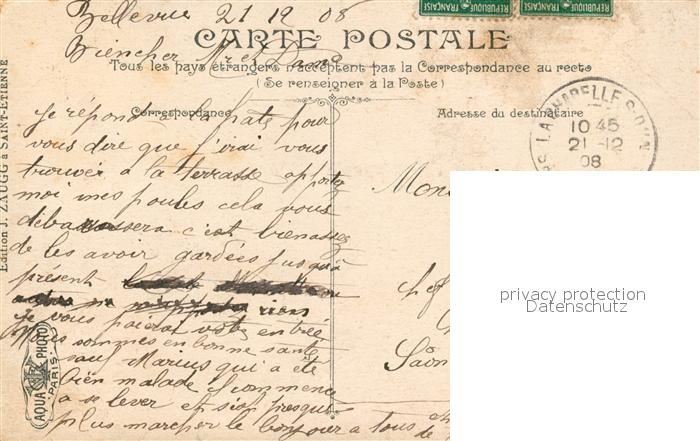 Bellevue 21 12 08
Biencher Mr et Dame
CARTE POSTALE
Tous les pays étrangers n'acceptent pas la Correspondance au recto
(Se renseigner à la Poste)
Correspondance
Adresse du destinataire
Je répond a la hate pour
vous dire que j'irai vous
trouver a la terrasse apportez
moi mes poules cela vous
debarassera c'est bien assez
de les avoir gardées jusqu'à
présent
rien
je vous paierai votre
sommes en bonne santé
sauf Marius qui a été
bien malade il commence
a se lever et
plus marcher le bonjour a tous
de
LA CHAPELLE S-DUN
10 45
21 -12
08
Mon
Saôn
REPUBLIQUE FRANCAISE
Edition J. ZAUGG à SAINT-ETIENNE
AQUA PHOTO
PARIS
privacy protection
Datenschutz